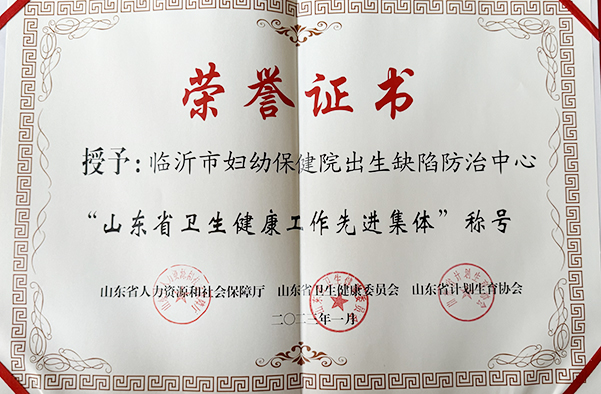 荣誉证书
授予：临沂市妇幼保健院出生缺陷防治中心
“山东省卫生健康工作先进集体”称号
山东省人力资源和社会保障厅 山东省卫生健康委员会 山东省计划生育协会
二〇二三年一月